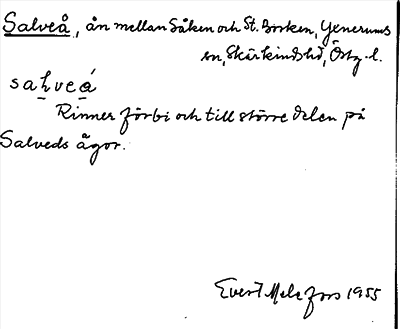 Salveå, ån mellan Såken och St. Borken, Yxnerums
sn, Skärkinds hd, Östg. l.
salveå
Rinner förbi och till större delen på
Salveds ägor.
Evert Melefors 1955